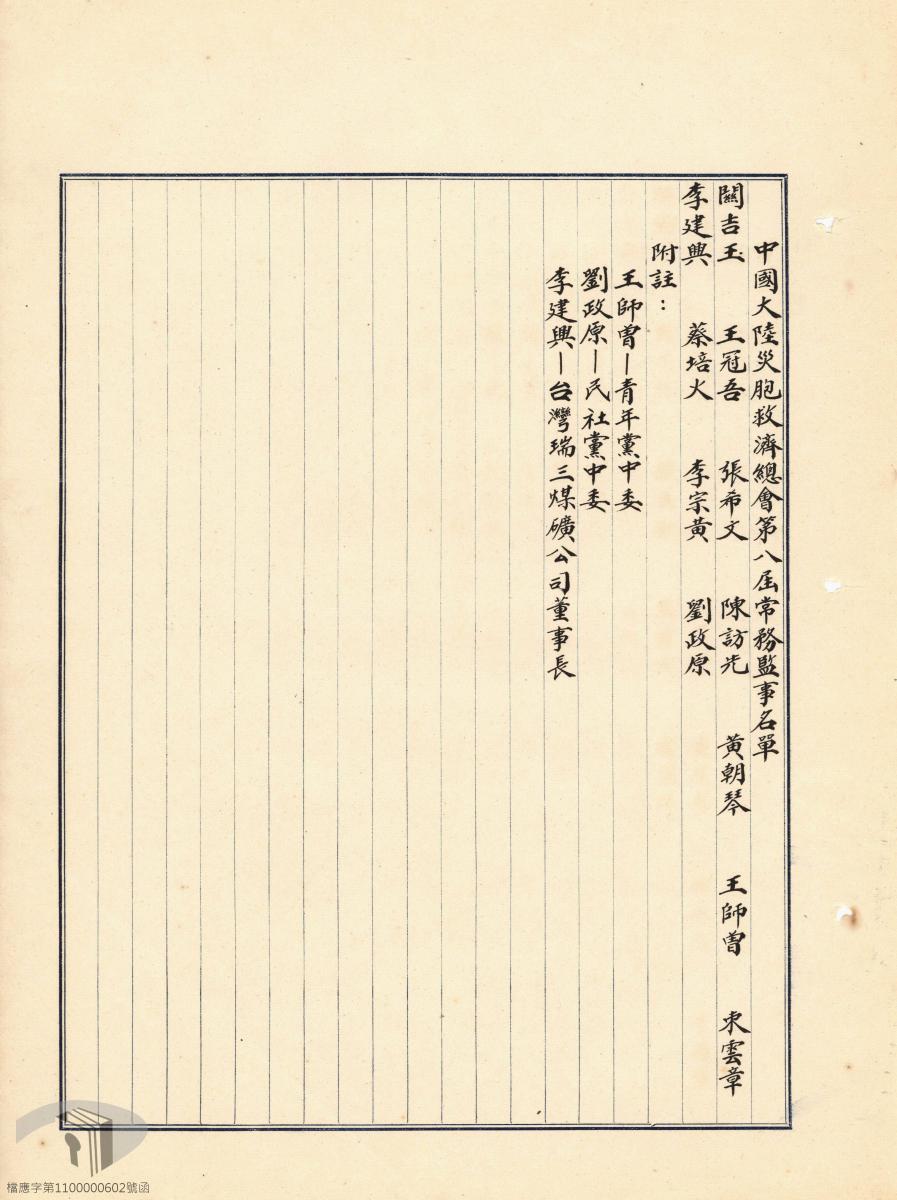 中國大陸災胞救濟總會第八屆常務監事名單
關吉玉 王冠吾 張希文 陳訪先 黃朝琴 王師曾 束雲章
李建興 蔡培火 李宗黃 劉政原
附註：
王師曾—青年黨中委
劉政原—民社黨中委
李建興—台灣瑞三煤礦公司董事長
檔應字第1100000602號函